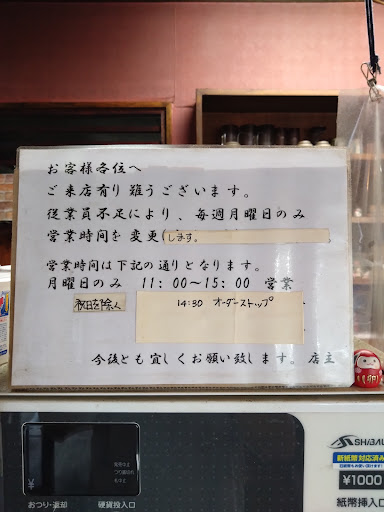 お客様各位へ
ご来店有り難うございます。
従業員不足により、毎週月曜日のみ
営業時間を変更します。
営業時間は下記の通りとなります。
月曜日のみ 11:00~15:00 営業
祝日を除く 14:30 オーダーストップ
今後とも宜しくお願い致します。店主
おつり・返却
硬貨投入口
¥
SHIBAU
新紙幣対応済み
¥1000
紙幣挿入口